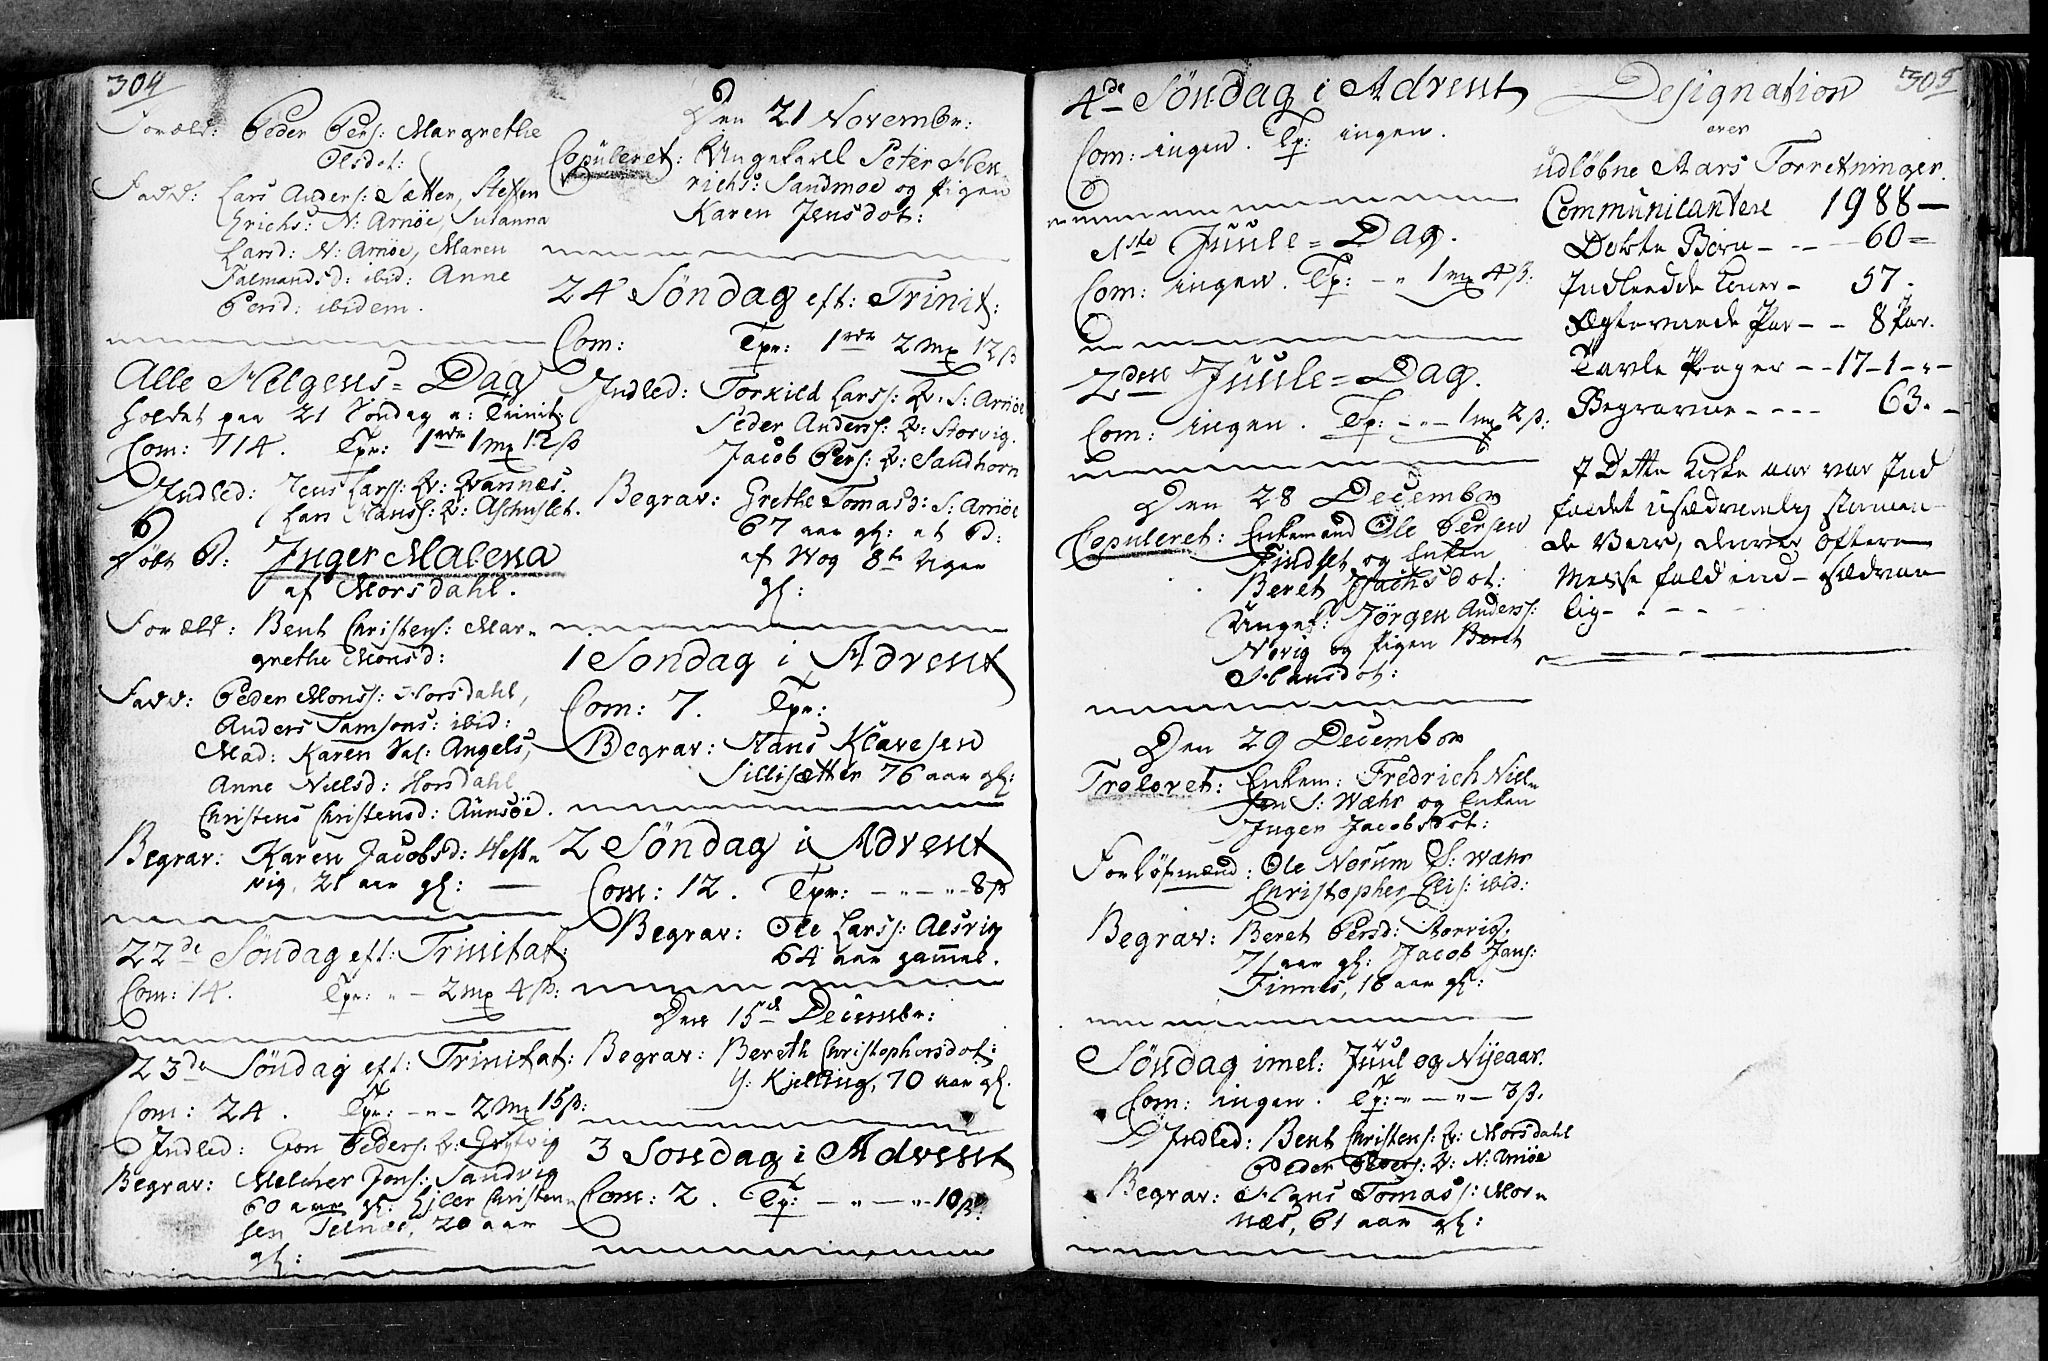 304
Foræld: Peder Pers: Margrethe
Olsdot:
Fadd: Lars Anders: Sætter, Steffen
Erichs: N: Arnöe, Susanna
Larsd: N: Arnöe, Maren
Falmandsd: ibid: Anne
Persd: ibidem.
Alle Helgens = Dag
holdet paa 21 Söndag a: Trinit:
Com: 114. Tpr: 1 rdr 1 mp 12 β
Indled: Jens Larss: Q: Evannes.
Lars Hanss: Q: Aschuslet.
Döbt B: Inger Malena
af Morsdahl.
Foræld: Bent Christens: Mar-
grethe Monsd:
Fadd: Peder Monss: Morsdahl,
Anders Samsons: ibid:
Mad: Karen Sal: Angels,
Anne Nielsd: Horsdahl
Christens Christensd: Aunsöe.
Begrav: Karen Jacobsd: Hest-
vig, 21 aar gl:
22de Söndag eft: Trinitat:
Com: 14. Tpr: " - 2 mp 4 β:
23de Söndag eft: Trinitat:
Com: 24. Tpr: - " - 2 mp 15 β:
Indled: Gon Peders: Q:
Begrav: Melcher Jons: Sandvig
60 aar gl: Ejler Christen-
sen Telnæs, 20 aar
gl:
Den 21 Novembr:
Copuleret: Ungekarl Peter Hen
richs: Sandmoe og Pigen
Karen Jensdot:
24 Söndag eft: Trinit:
Com: Tpr: 1 rdr 2 mp 12 β
Indled: Torkild Larss: Q: S: Arnöe
Peder Anderss: Q: Storvig.
Jacob Pers: Q: Sandhorn
Begrav: Grethe Tomasd: S: Arnöe
67 aar gl: et B:
af Wog 8te Uger
gl:
1 Söndag i Advent
Com: 7. Tpr:
Begrav: Hans Klavesen
Sillisætter 76 aar gl:
2 Söndag i Advent
Com: 12. Tpr: - " - " - 8 β
Begrav: Ole Larss: Alsvig
64 aar gammel.
Den 15de Decembr:
Begrav: Bereth Christophersdot:
Y: Kjelling, 70 aar gl.
3 Söndag i Advent
Com: 2. Tp: - " - " - 10 β:
4de Söndag i Advent
Com: ingen. Tp: ingen.
1ste Juule = Dag.
Com: ingen. Tp: - " 1 mp 4 β:
2den Juule = Dag.
Com: ingen. Tp: - " - 1 mp 2 β:
Den 28 December
Copuleret: Enkemand Ole Persen
Findset og Enken
Beret Isachsdot:
Ungef: Jörgen Anderss:
Norvig og Pigen Beret
Hansdot:
Den 29 December
Troloret: Enkem: Fredrich Niel-
sen S: Wæhr og Enken
Inger Jacobsdot:
Forlöfmænd: Ole Norum S: Wæhr
Christopher Elis: ibid:
Begrav: Beret Persd: Storvig,
71 aar gl: Jacob Jans:
Finnes, 16 aar gl:
Söndag imel: Juul og Nyeaar.
Com: ingen. Tp: - " - " - 3 β.
Indled: Bent Christens: Q: Morsdahl
Peder Pers: Q: N: Arnöe
Begrav: Hans Tomass: Mor-
næs, 61 aar gl:
305
Designation
over
udlöbne Aars Forretninger.
Communicantere 1988 -
Döbte Börn - - - 60 =
Indleedde Koner - 57 -
Ægteviede Par - - 8 Par.
Tavle Penger - - 17 - 1 - " -
Begravne - - - - 63. -
I Dette Kirke aar var Ind
faldet usædvanlig stormen-
de Veir, deraf oftere
Messe fald end sædvan-
lig - . - - -